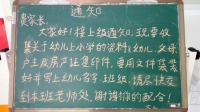 通知
家长:
大家好!接上级通知,现要收
集关于幼儿上小学的资料:幼儿、父母
户主及房产证复印件,要用文件袋装
好并写上幼儿名字、班级,请尽快交
到本班老师处,谢谢您的配合!